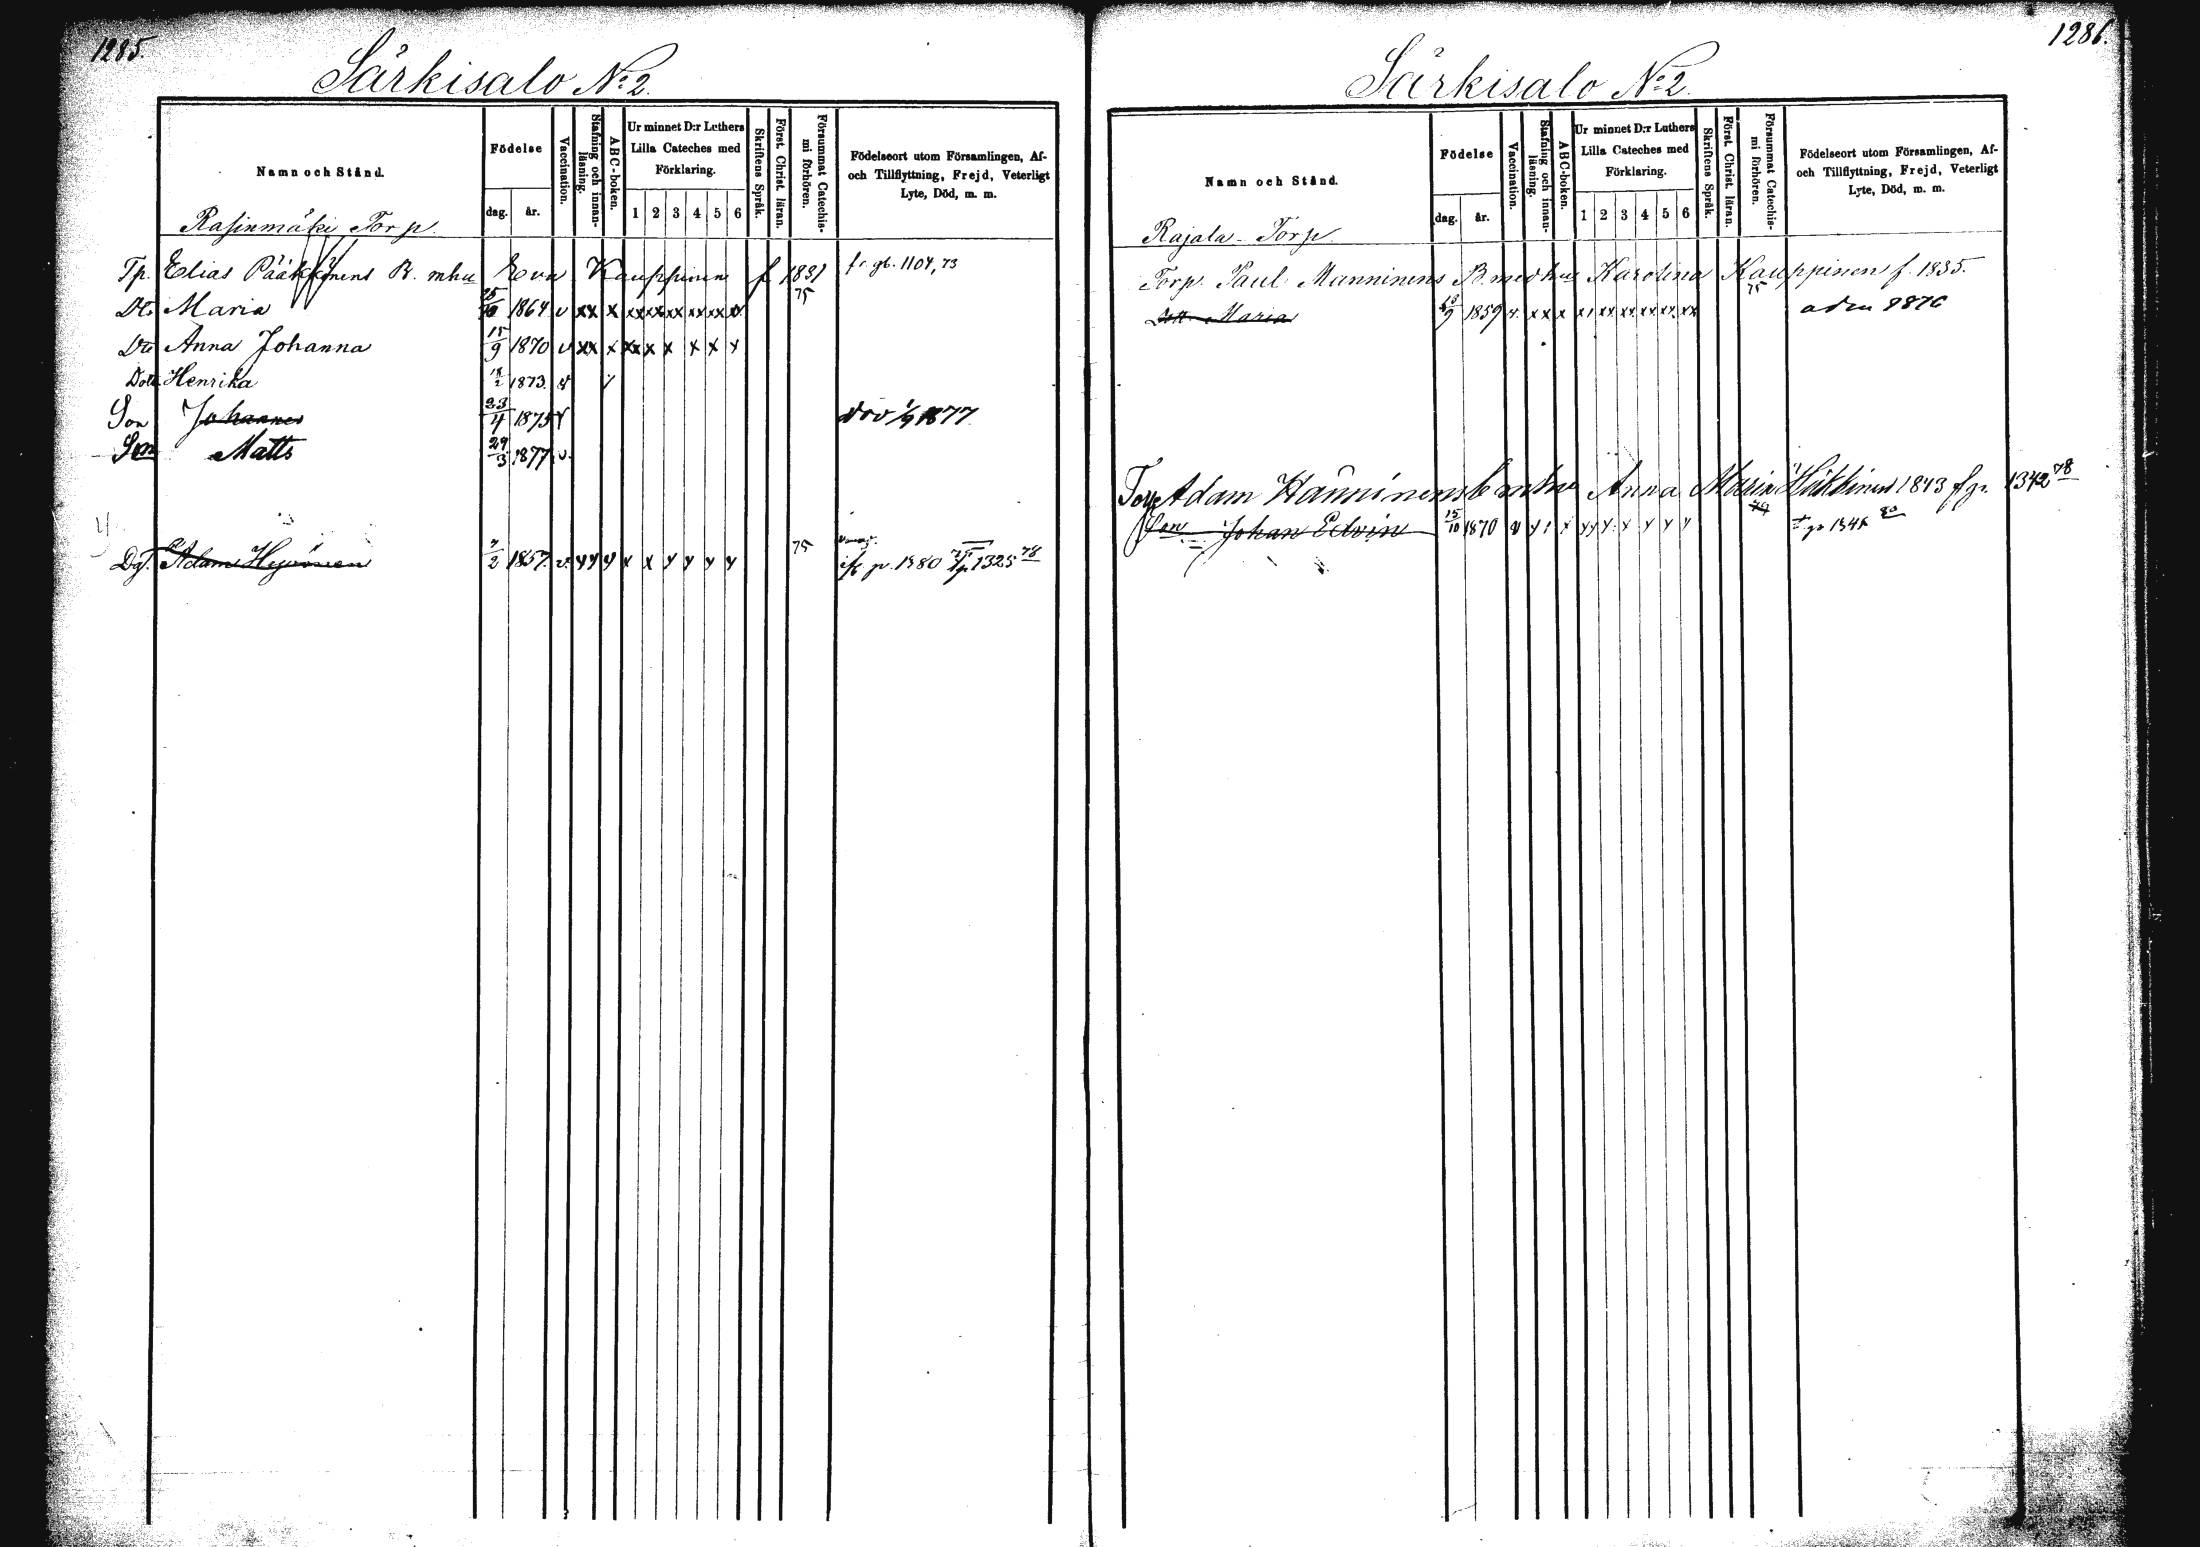 1285.
Särkisalo No 2.
Namn och Stånd.
Födelse
dag. år.
Vaccination.
Stafning och innan-läsning.
ABC-boken.
Ur minnet D:r Luthers Lilla Cateches med Förklaring.
1 2 3 4 5 6
Skriftens Språk.
Först. Christ. läran.
Försummat Catechis-mi förhören.
Födelseort utom Församlingen, Af- och Tillflyttning, Frejd, Veterligt Lyte, Död, m. m.
Rasinmäki Torp.
Tp. Elias Pääkkönens B. mhu Eva Kauppinen f 1831 fr. gb. 1104, 73
75
Dr. Maria 25/10 1864 v xx x xx xx xx xx xx
Dr. Anna Johanna 15/9 1870 v xx x xx x x x x x
Dott. Henrika 18/2 1873 v
Son Johannes 23/4 1875 v död 1/9 1877
Son Matts 29/3 1877 v.
Dgt. Adam Hyvönen 7/2 1857 v. 75 p. 1380 1325 78
1286.
Särkisalo No 2.
Namn och Stånd.
Födelse
dag. år.
Vaccination.
Stafning och innan-läsning.
ABC-boken.
Ur minnet D:r Luthers Lilla Cateches med Förklaring.
1 2 3 4 5 6
Skriftens Språk.
Först. Christ. läran.
Försummat Catechis-mi förhören.
Födelseort utom Församlingen, Af- och Tillflyttning, Frejd, Veterligt Lyte, Död, m. m.
Rajala Torp.
Torp. Paul Manninens B medhu Karolina Kauppinen f. 1835.
75
Dott. Maria 1859 v. xx x xx xx xx xx xx 1876
Torp Adam Hänninens b mhu Anna Maria 1843 fr. 1342 78
79
Son Johan Edvin 15/10 1870 v 80